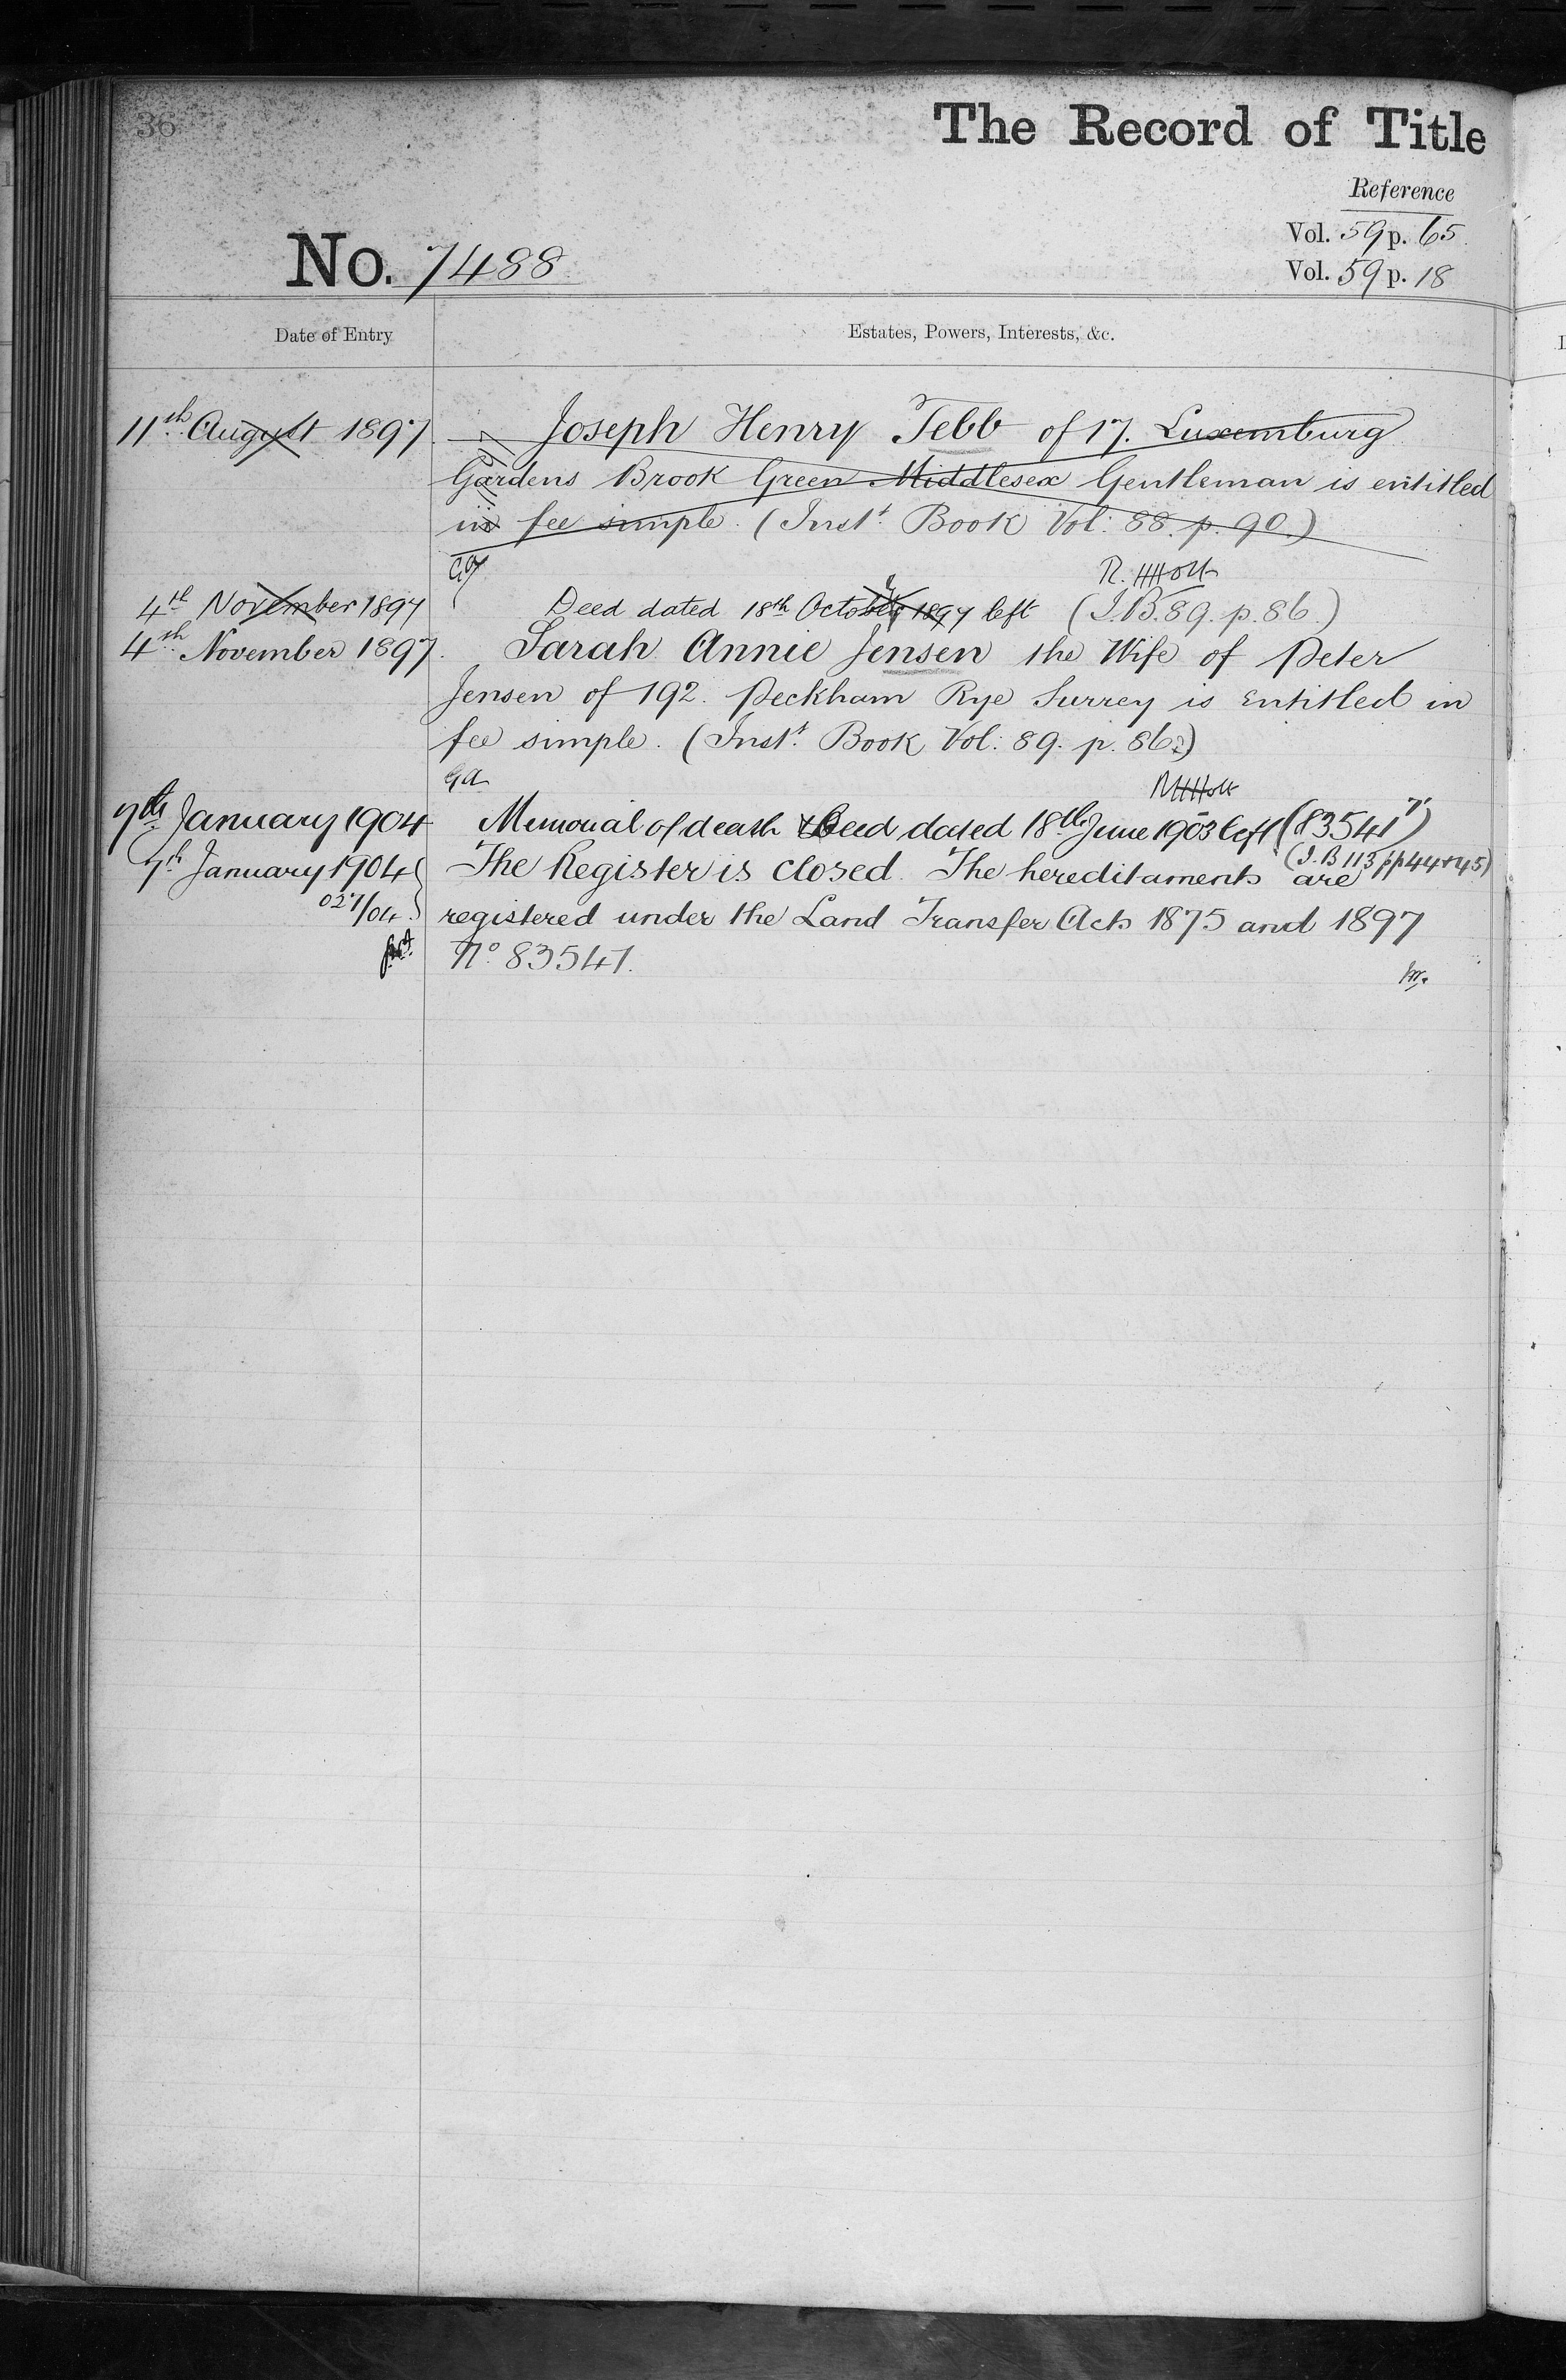 36
The Record of Title
Reference
Vol. 59 p. 65
Vol. 59 p. 18
No. 7488
Date of Entry
Estates, Powers, Interests, &c.
11th August 1897 Joseph Henry Tebb of 17. Luxemburg
Gardens Brook Green Middlesex Gentleman is entitled
in fee simple. (Inst. Book Vol: 88. p. 90.)
R. HHolt
4th November 1897 Deed dated 18th October 1897 left (I.B. 89. p. 86.)
4th November 1897. Sarah Annie Jensen the Wife of Peter
Jensen of 192. Peckham Rye Surrey is Entitled in
fee simple. (Inst. Book Vol: 89. p. 86.)
Ga RHHolt
7th January 1904 Memorial of death & Deed dated 18th June 1903 left (83541)
(I.B 113 pp 44+45)
7th January 1904 The Register is closed. The hereditaments are
027/04 registered under the Land Transfer Acts 1875 and 1897
No 83541.